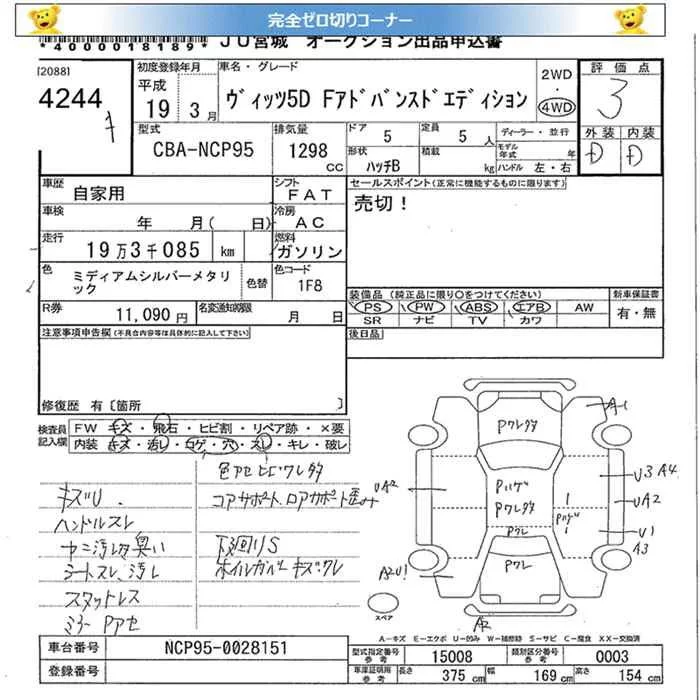 完全ゼロ切りコーナー
*4000018189* JU宮城 オークション出品申込書
[2088]
4244
初度登録年月
平成
19 3月
車名・グレード
ヴィッツ5D Fアドバンスドエディション
2WD
・
4WD
評価点
3
型式
CBA-NCP95
排気量
1298
CC
ドア
5
定員
5 人
形状
ハッチB
積載
kg
ディーラー・並行
モデル年式 年
ハンドル 左・右
外装 内装
D D
車歴
自家用
シフト
FAT
セールスポイント(正常に機能するものに限ります)
売切!
車検
年 月( 日)
冷房
AC
走行
19万3千085 km
燃料
ガソリン
色
ミディアムシルバーメタリック
色替
色コード
1F8
R券
11,090円
名変通知期限
月 日
装備品(純正品に限り○をつけてください)
新車保証書
PS PW ABS エアB AW
SR ナビ TV カワ
有・無
注意事項申告欄(不具合内容等は具体的に記入して下さい)
後日品
修復歴 有〔箇所 〕
検査員記入欄
FW キズ・飛石・ヒビ割・リペア跡・×要
内装 キズ・汚レ・コゲ・穴・スレ・キレ・破レ
キズU.
ハンドルスレ
シートスレ、汚レ
スタットレス
ミラーPアセ
色アセヒビワレ多
コアサポート、ロアサポート歪み
下回りS
ホイルカバーキズワレ
Pワレ多
Pハゲ
Pワレ多
Pワレ
Pハゲ
Pワレ
A-1
UA2
U3 A4
UA2
U1
A3
A2U1
A2
スペア
A-キズ E-エクボ U-凹み W-補修跡 S-サビ C-腐食 XX-交換済
車台番号
NCP95-0028151
登録番号
型式指定番号
参考
15008
類別区分番号
参考
0003
車庫証明用
参考
長さ
375 cm
幅
169 cm
高さ
154 cm